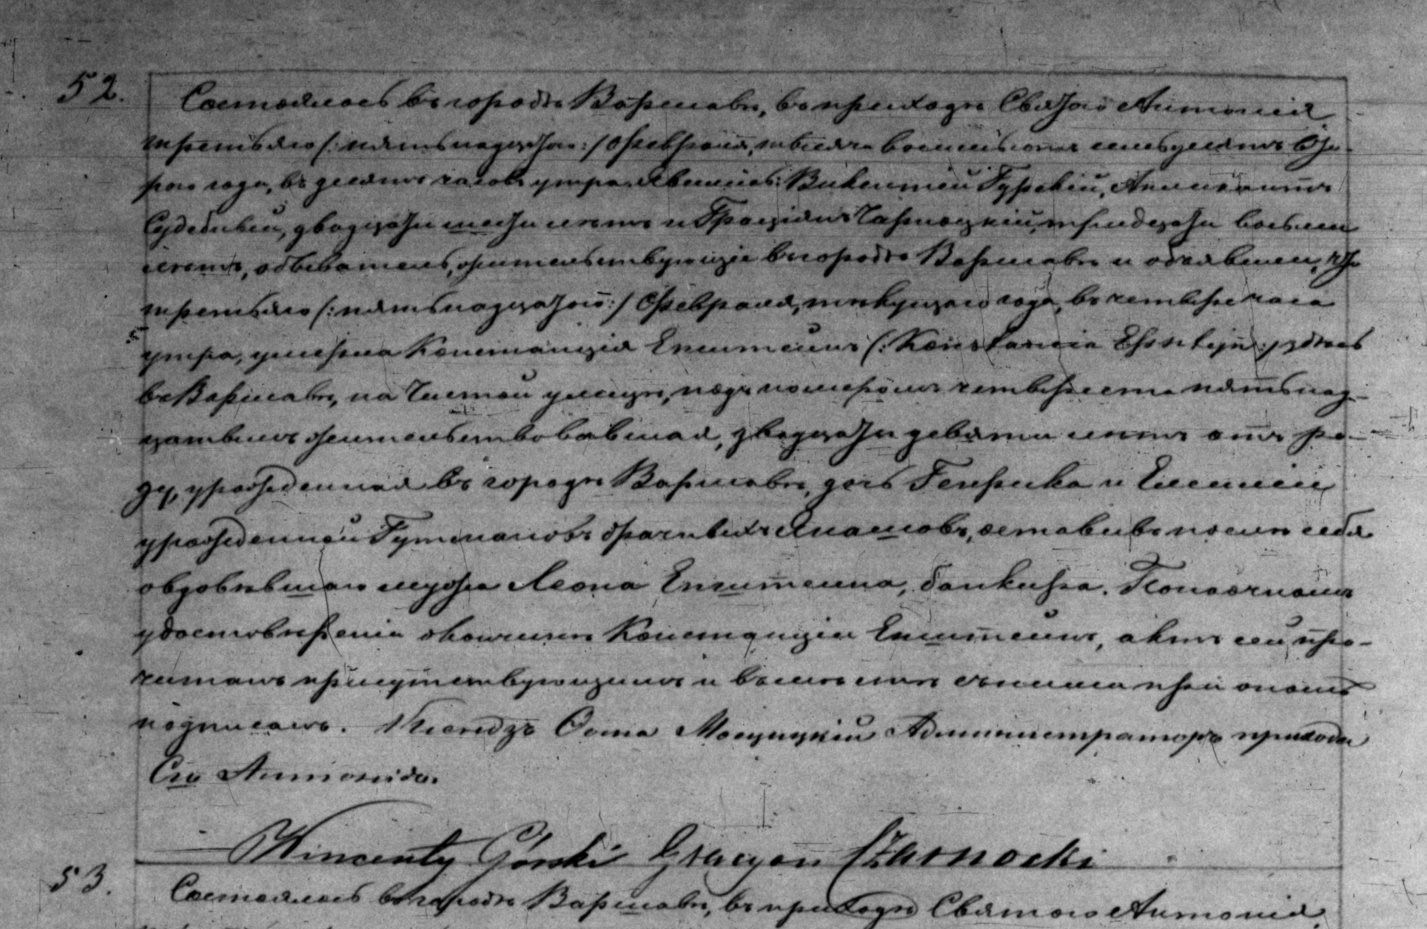 52.
Состоялось въ городѣ Варшавѣ, въ приходѣ Святаго Антонія
третьяго /:пятьнадцатаго:/ Февраля, тысяча восемьсотъ семьдесятъ Вто-
раго года, въ десять часовъ утра. Явились: Викентій Гурскій, Апликантъ
Судебный, двадцати шести лѣтъ и Граціянъ Чарноцкій, тридцати восьми
лѣтъ, обыватель, жительствующіе въ городѣ Варшавѣ и объявили, что
третьяго /:пятьнадцатаго:/ Февраля, текущаго года, въ четыре часа
утра, умерла Констанція Епштейнъ (:Konstancia Epsztejn:) здѣсь
въ Варшавѣ, на Чистой улицѣ, подъ номеромъ четыреста пятьнад-
цатымъ жительствовавшая, двадцати девяти лѣтъ отъ ро-
ду, урожденная въ городѣ Варшавѣ, дочь Генрика и Емиліи
урожденной Гутманъ, оставивъ послѣ себя
овдовѣвшаго мужа Леона Епштейна, банкира. По наочномъ
удостовѣреніи о кончинѣ Констанціи Епштейнъ, актъ сей про-
читанъ присутствующимъ и нами при ономъ
подписанъ. Ксендзъ Мосцицкій Администраторъ прихода
Сго Антонія.
Wincenty Górski Gracyan Czarnocki
53.
Состоялось въ городѣ Варшавѣ, въ приходѣ Святого Антонія,